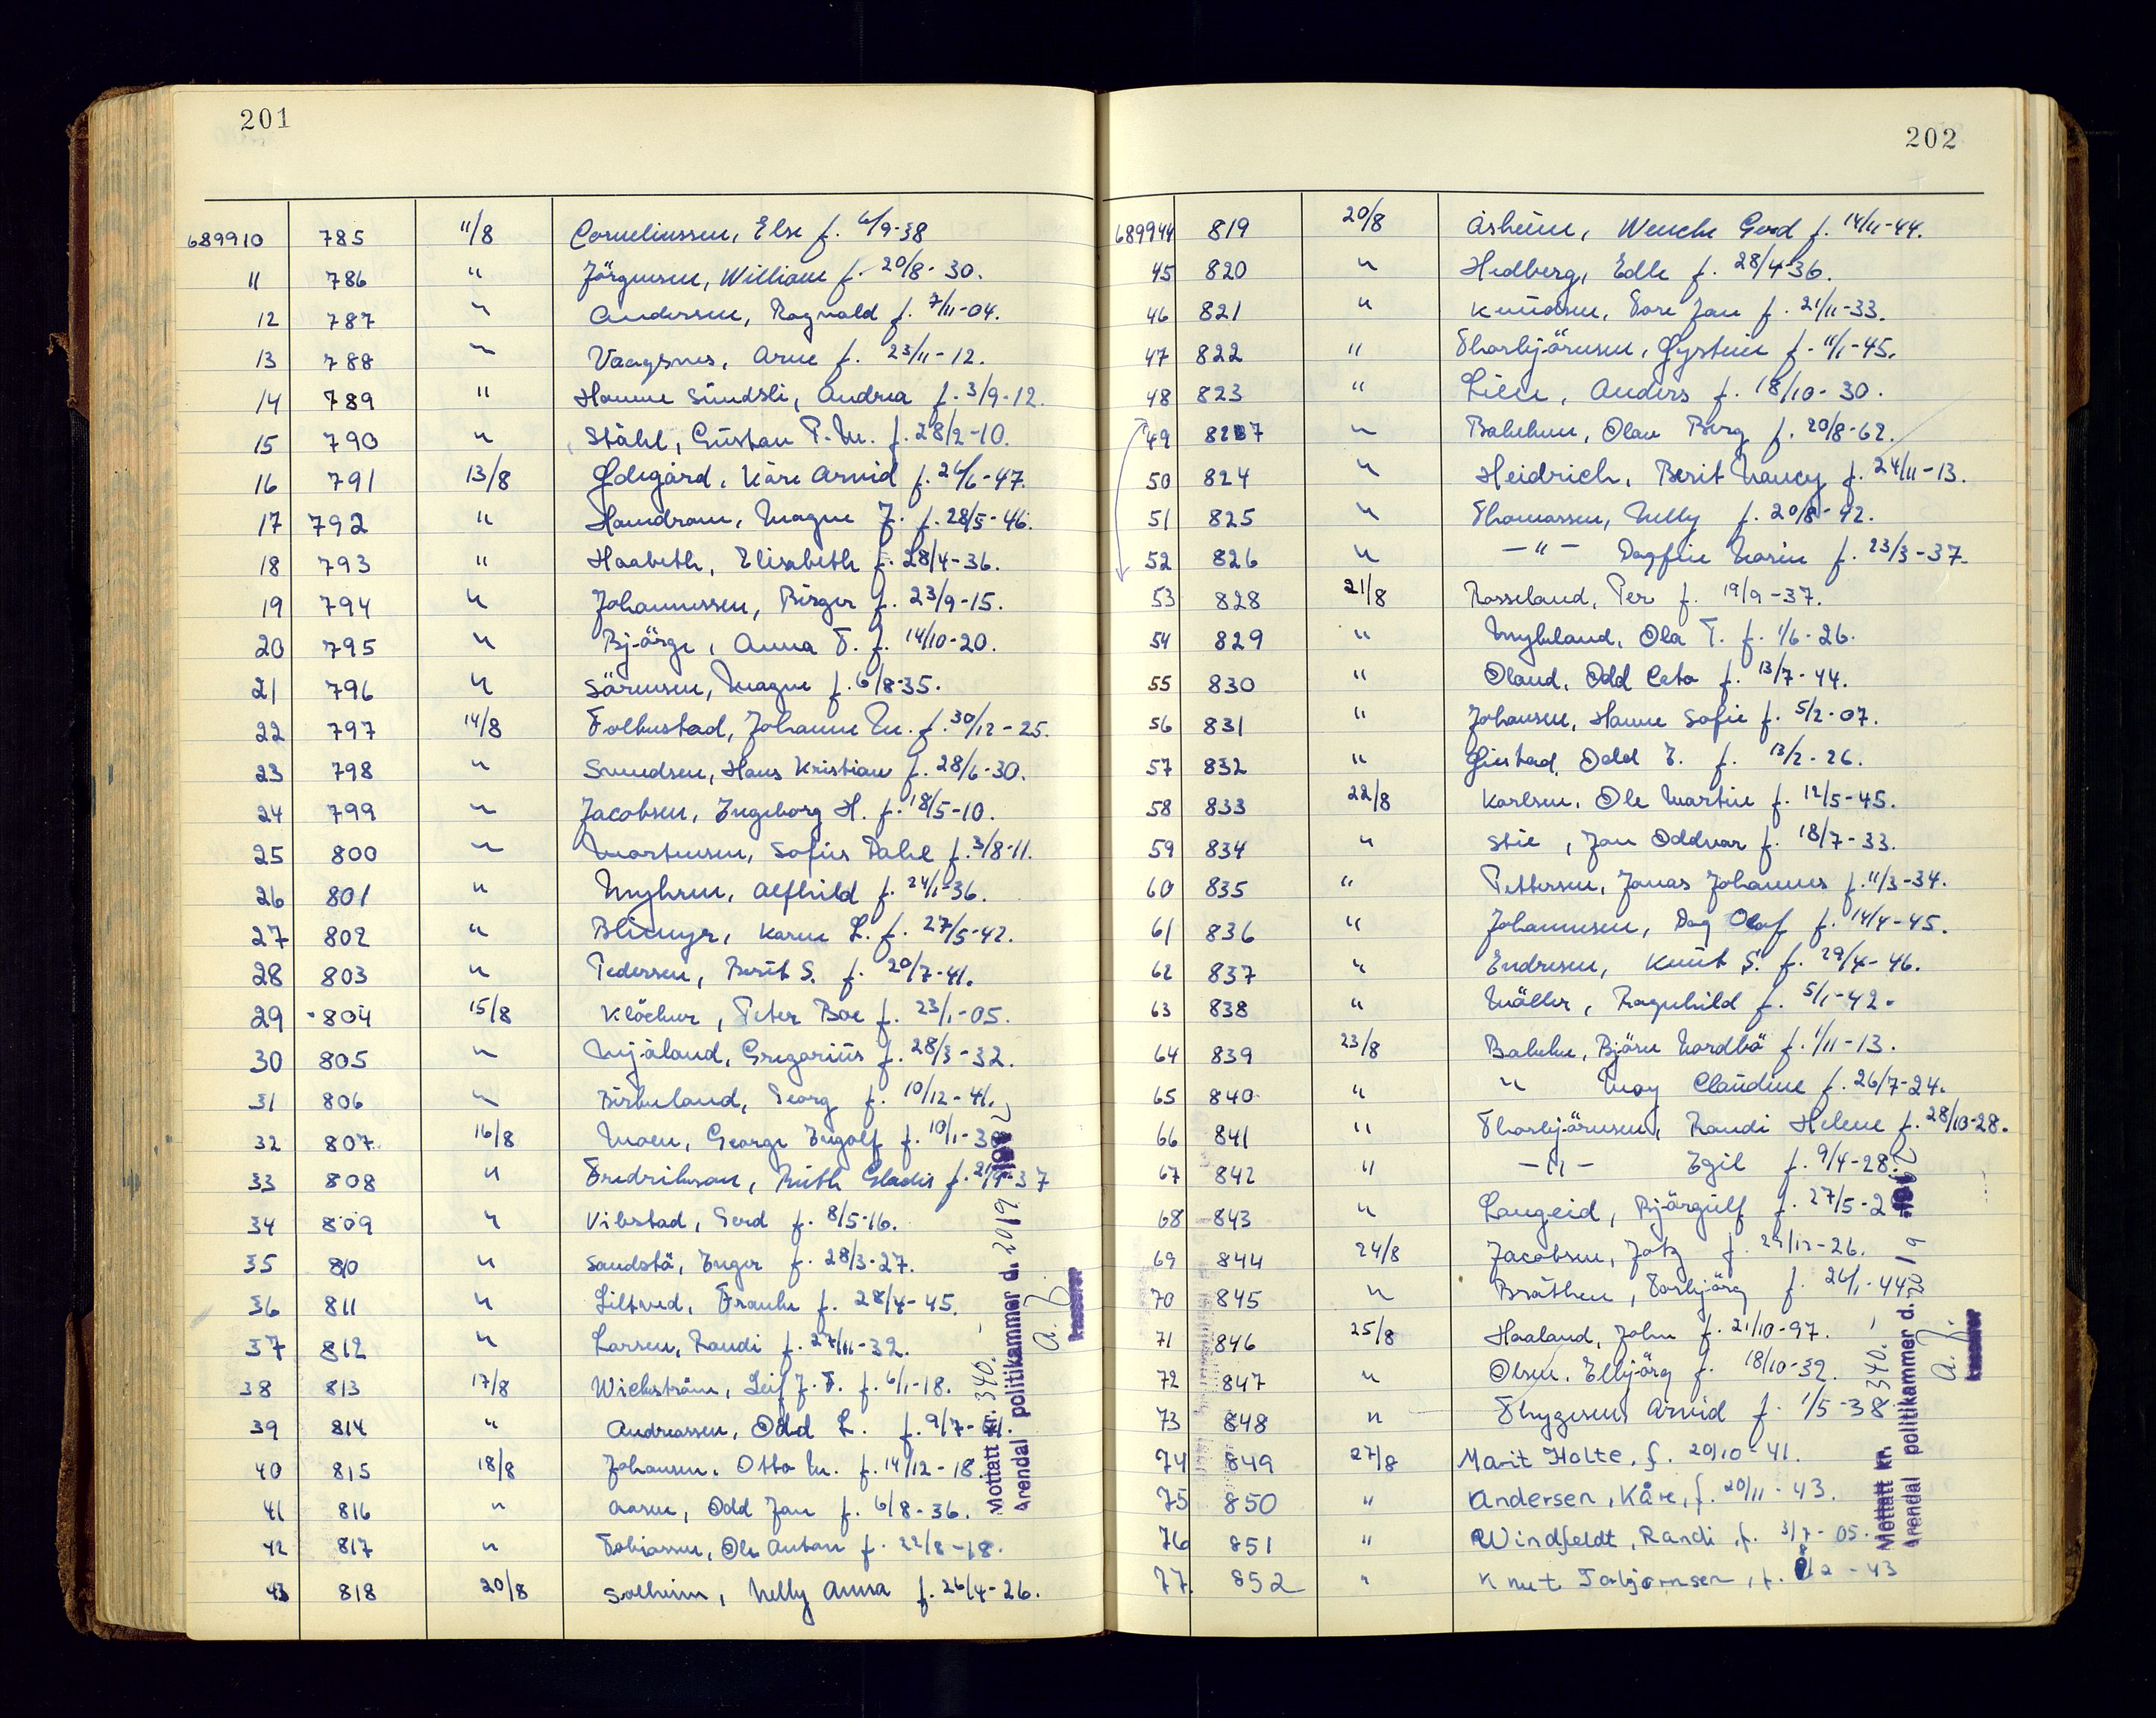 201
689910 785 11/8 Corneliussen, Else f. 6/9-38
11 786 " Jörgensen, William f. 20/8-30.
12 787 " Andersen, Ragnvald f. 7/11-04.
13 788 " Vaagsnes, Arne f. 23/11-12.
14 789 " Hamre Sundsli, Andrea f. 3/9-12.
15 790 " Ståhl, Gustav P. M. f. 28/2-10.
16 791 13/8 Ødegård, Kåre Arvid f. 26/6-47.
17 792 " Hamdram, Magne J. f. 28/5-46.
18 793 " Haabeth, Elisabeth f. 28/4-36.
19 794 " Johannessen, Birger f. 23/9-15.
20 795 " Bjørge, Anna T. f. 14/10-20.
21 796 " Sörensen, Magne f. 6/8-35.
22 797 14/8 Folkestad, Johanne M. f. 30/12-25.
23 798 " Svendsen, Hans Kristian f. 28/6-30.
24 799 " Jacobsen, Ingeborg H. f. 18/5-10.
25 800 " Mortensen, Sofus Dahl f. 3/8-11.
26 801 " Myhren, Alfhild f. 24/1-36.
27 802 " Blimyr, Karen L. f. 27/5-42.
28 803 " Pedersen, Berit S. f. 20/7-41.
29 804 15/8 Klöcker, Peter Boe f. 23/1-05.
30 805 " Mjåland, Gregorius f. 28/3-32.
31 806 " Birkeland, Georg f. 10/12-41.
32 807 16/8 Moen, George Ingolf f. 10/1-3
33 808 " Fredriksen, Ruth Gladis f. 21/9-37
34 809 " Vibstad, Gerd f. 8/5-16.
35 810 " Sandstö, Inger f. 28/3-27.
36 811 " Liltved, Frauke f. 28/4-45.
37 812 " Larsen, Randi f. 27/11-32.
38 813 17/8 Wickström, Leif J. T. f. 6/1-18.
39 814 " Andreassen, Odd L. f. 9/7-41.
40 815 18/8 Johansen, Otto M. f. 14/12-18.
41 816 " Aasen, Odd Jan f. 6/8-36.
42 817 " Tobiassen, Ole Anton f. 22/8-18.
43 818 20/8 Solheim, Nelly Anna f. 26/4-26.
Mottatt kr. 340.-
Arendal politikammer d. 20/9
A. J.
kasserer
202
689944 819 20/8 Åsheim, Wenche Gerd f. 14/11-44.
45 820 " Hedberg, Edle f. 28/4-36.
46 821 " Knudsen, Tore Jan f. 21/11-33.
47 822 " Thorbjörnsen, Øystein f. 11/1-45.
48 823 " Lien, Anders f. 18/10-30.
49 827 " Bakken, Olav Berg f. 20/8-62.
50 824 " Heidrich, Berit Nancy f. 24/11-13.
51 825 " Thomassen, Nelly f. 20/8-42.
52 826 " —"— Dagfin Marin f. 23/3-37.
53 828 21/8 Rosseland, Per f. 19/9-37.
54 829 " Mykland, Ola T. f. 1/6-26.
55 830 " Oland, Odd Cato f. 13/7-44.
56 831 " Johansen, Hanne Sofie f. 5/2-07.
57 832 " Gjestad, Odd E. f. 13/2-26.
58 833 22/8 Karlsen, Ole Martin f. 12/5-45.
59 834 " Stie, Jan Oddvar f. 18/7-33.
60 835 " Pettersen, Jonas Johannes f. 11/3-34.
61 836 " Johannesen, Dag Olaf f. 14/4-45.
62 837 " Endresen, Knut S. f. 29/4-46.
63 838 " Möller, Ragnhild f. 5/1-42.
64 839 23/8 Bakke, Björn Nordbö f. 1/11-13.
65 840 " " May Claudine f. 26/7-24.
66 841 " Thorbjörnsen, Randi Helene f. 28/10-28.
67 842 " —"— Egil f. 9/4-28.
68 843 " Langeid, Bjørgulf f. 27/5-2
69 844 24/8 Jacobsen, f. 29/12-26.
70 845 " Bråthen, Torbjörg f. 26/1-44
71 846 25/8 Haaland, John f. 21/10-97.
72 847 " Olsen, Ellbjörg f. 18/10-32.
73 848 " Thygesen, Arvid f. 1/5-38
74 849 27/8 Marit Holte, f. 20/10-41.
75 850 " Andersen, Kåre, f. 20/11-43.
76 851 " Windfeldt, Randi, f. 3/7-05.
77 852 " Knut Torbjørnsen, f. /2-43
Mottatt kr. 340.-
Arendal politikammer d. /9
A. J.
kasserer